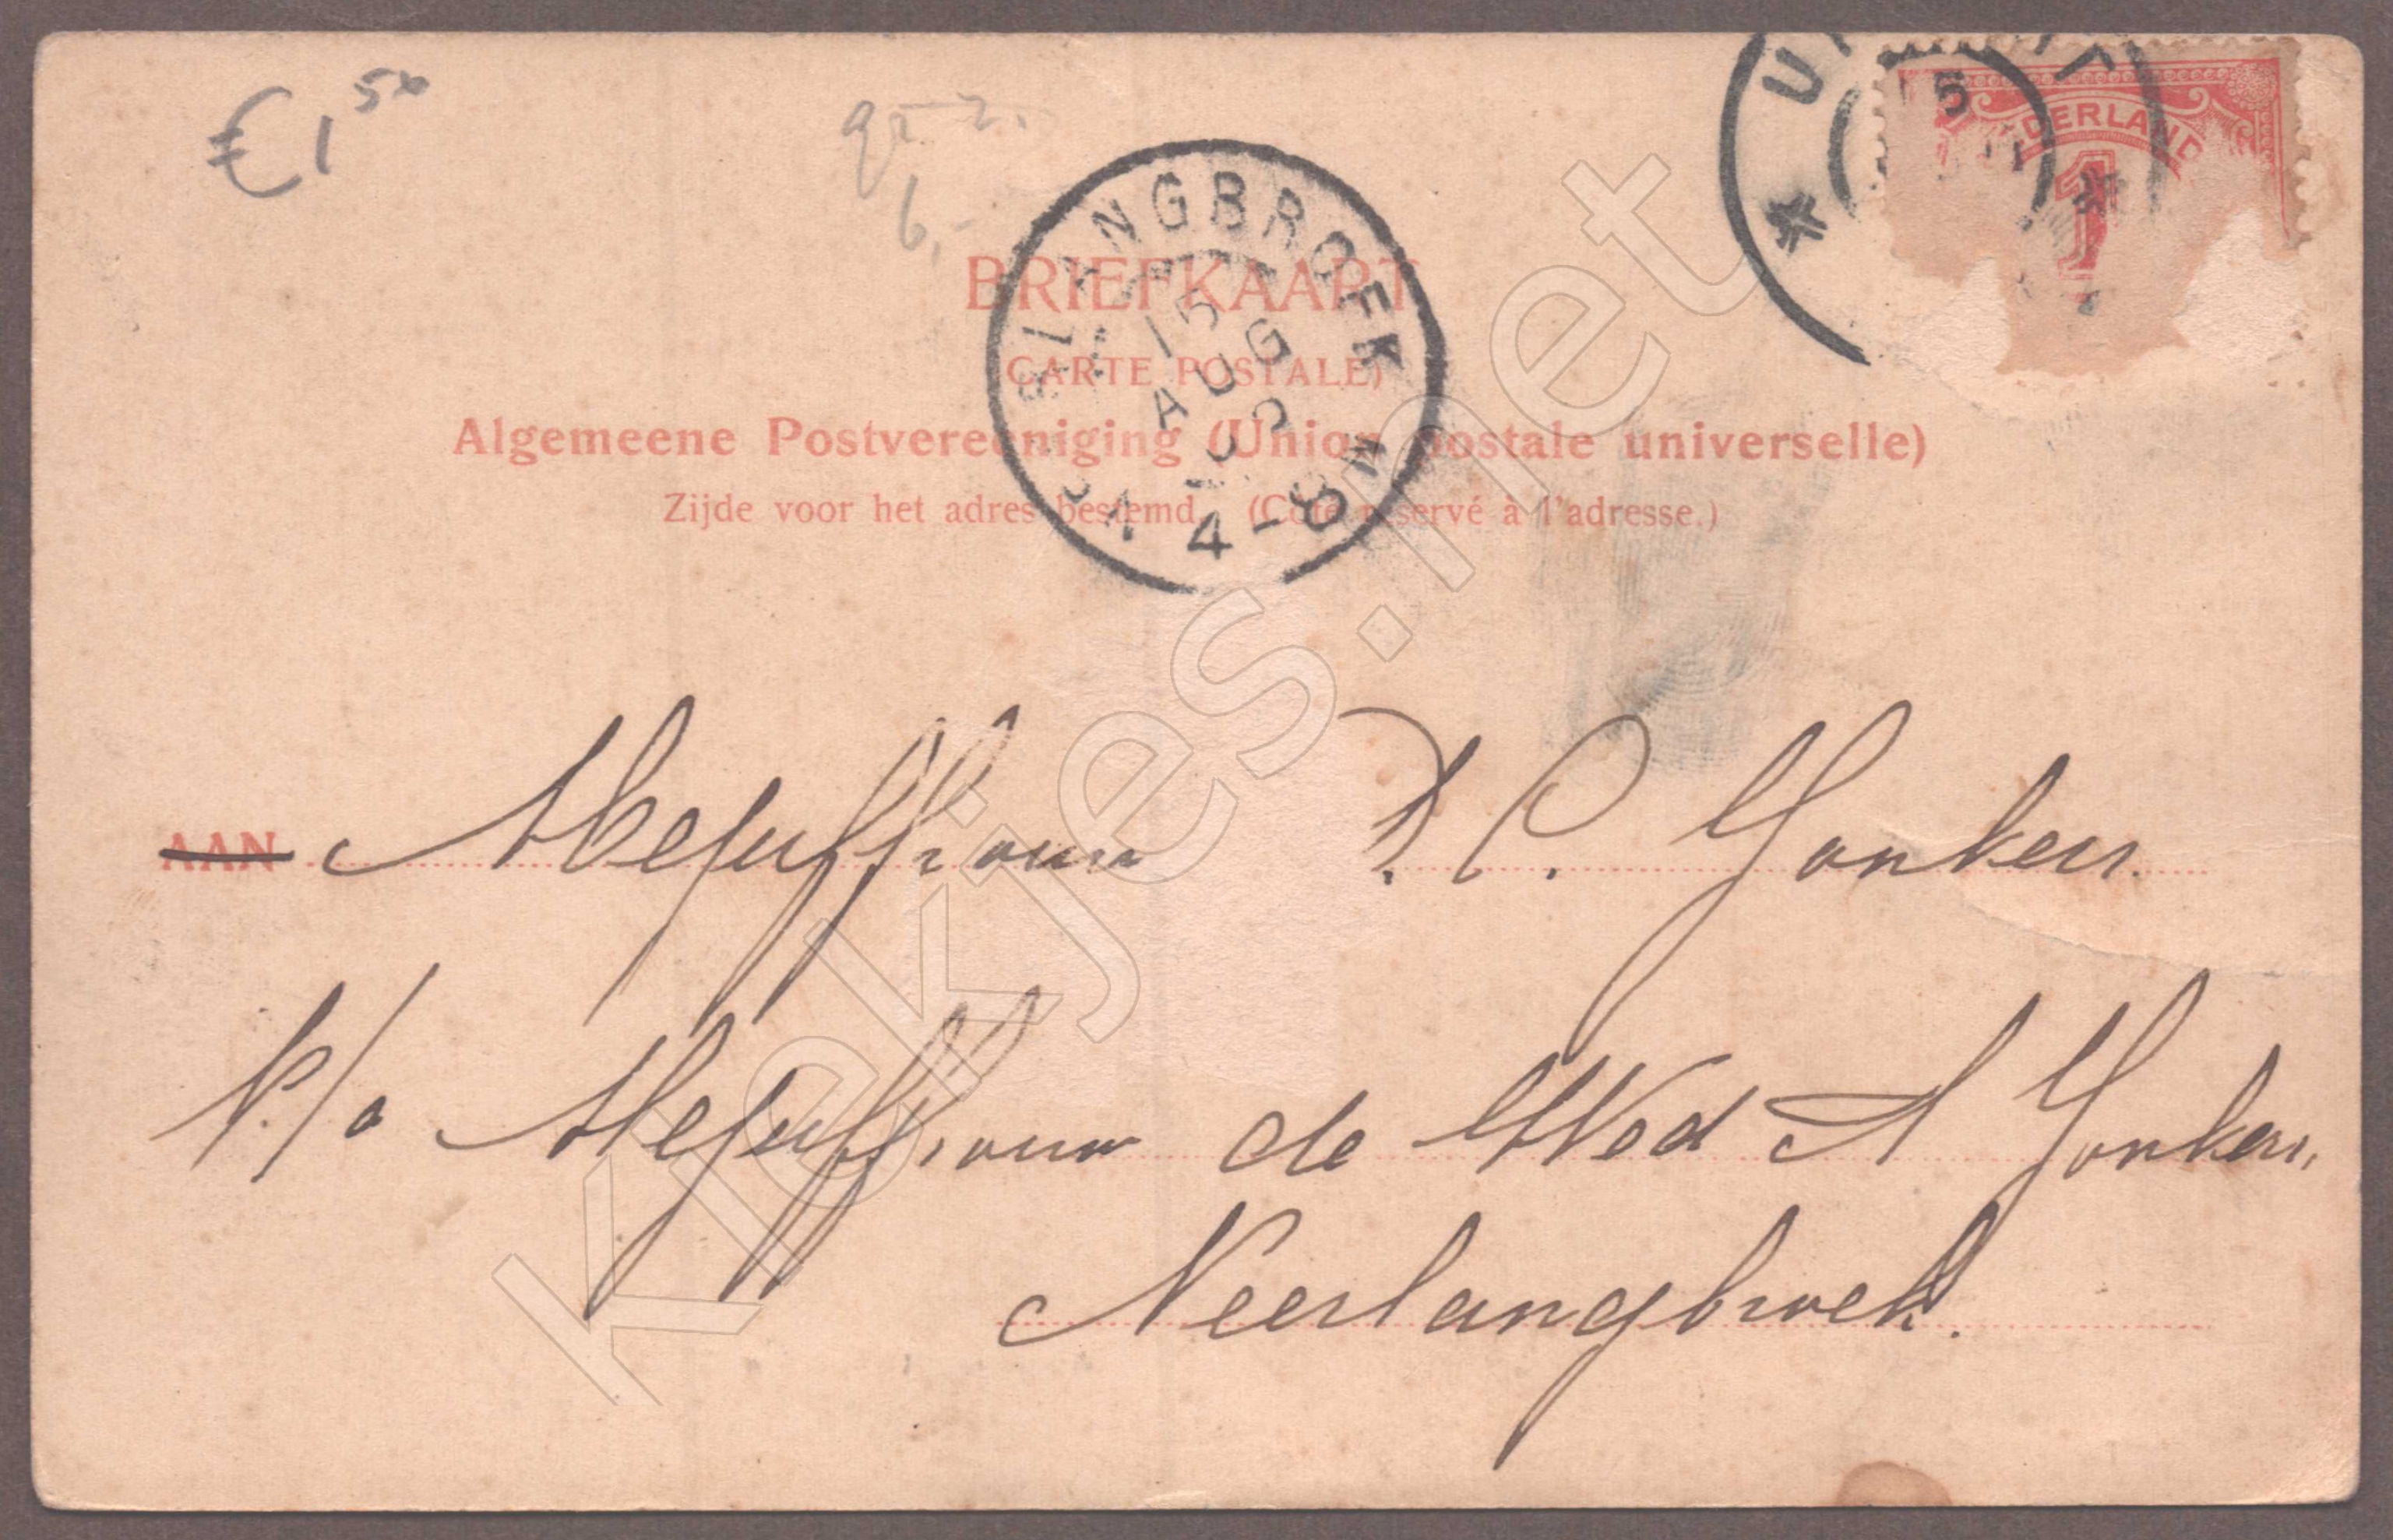 € 1 50
6,-
UT
15
NEDERLAND
1
LANGBROEK
15
AUG
4-8 N
BRIEFKAART
(CARTE POSTALE)
Algemeene Postvereeniging (Union postale universelle)
Zijde voor het adres bestemd. (Côté réservé à l'adresse.)
AAN Mejuffrouw D. C. Jonker.
p/a Mejuffrouw de Wed A Jonker,
Neerlangbroek.
Kiekjes.net